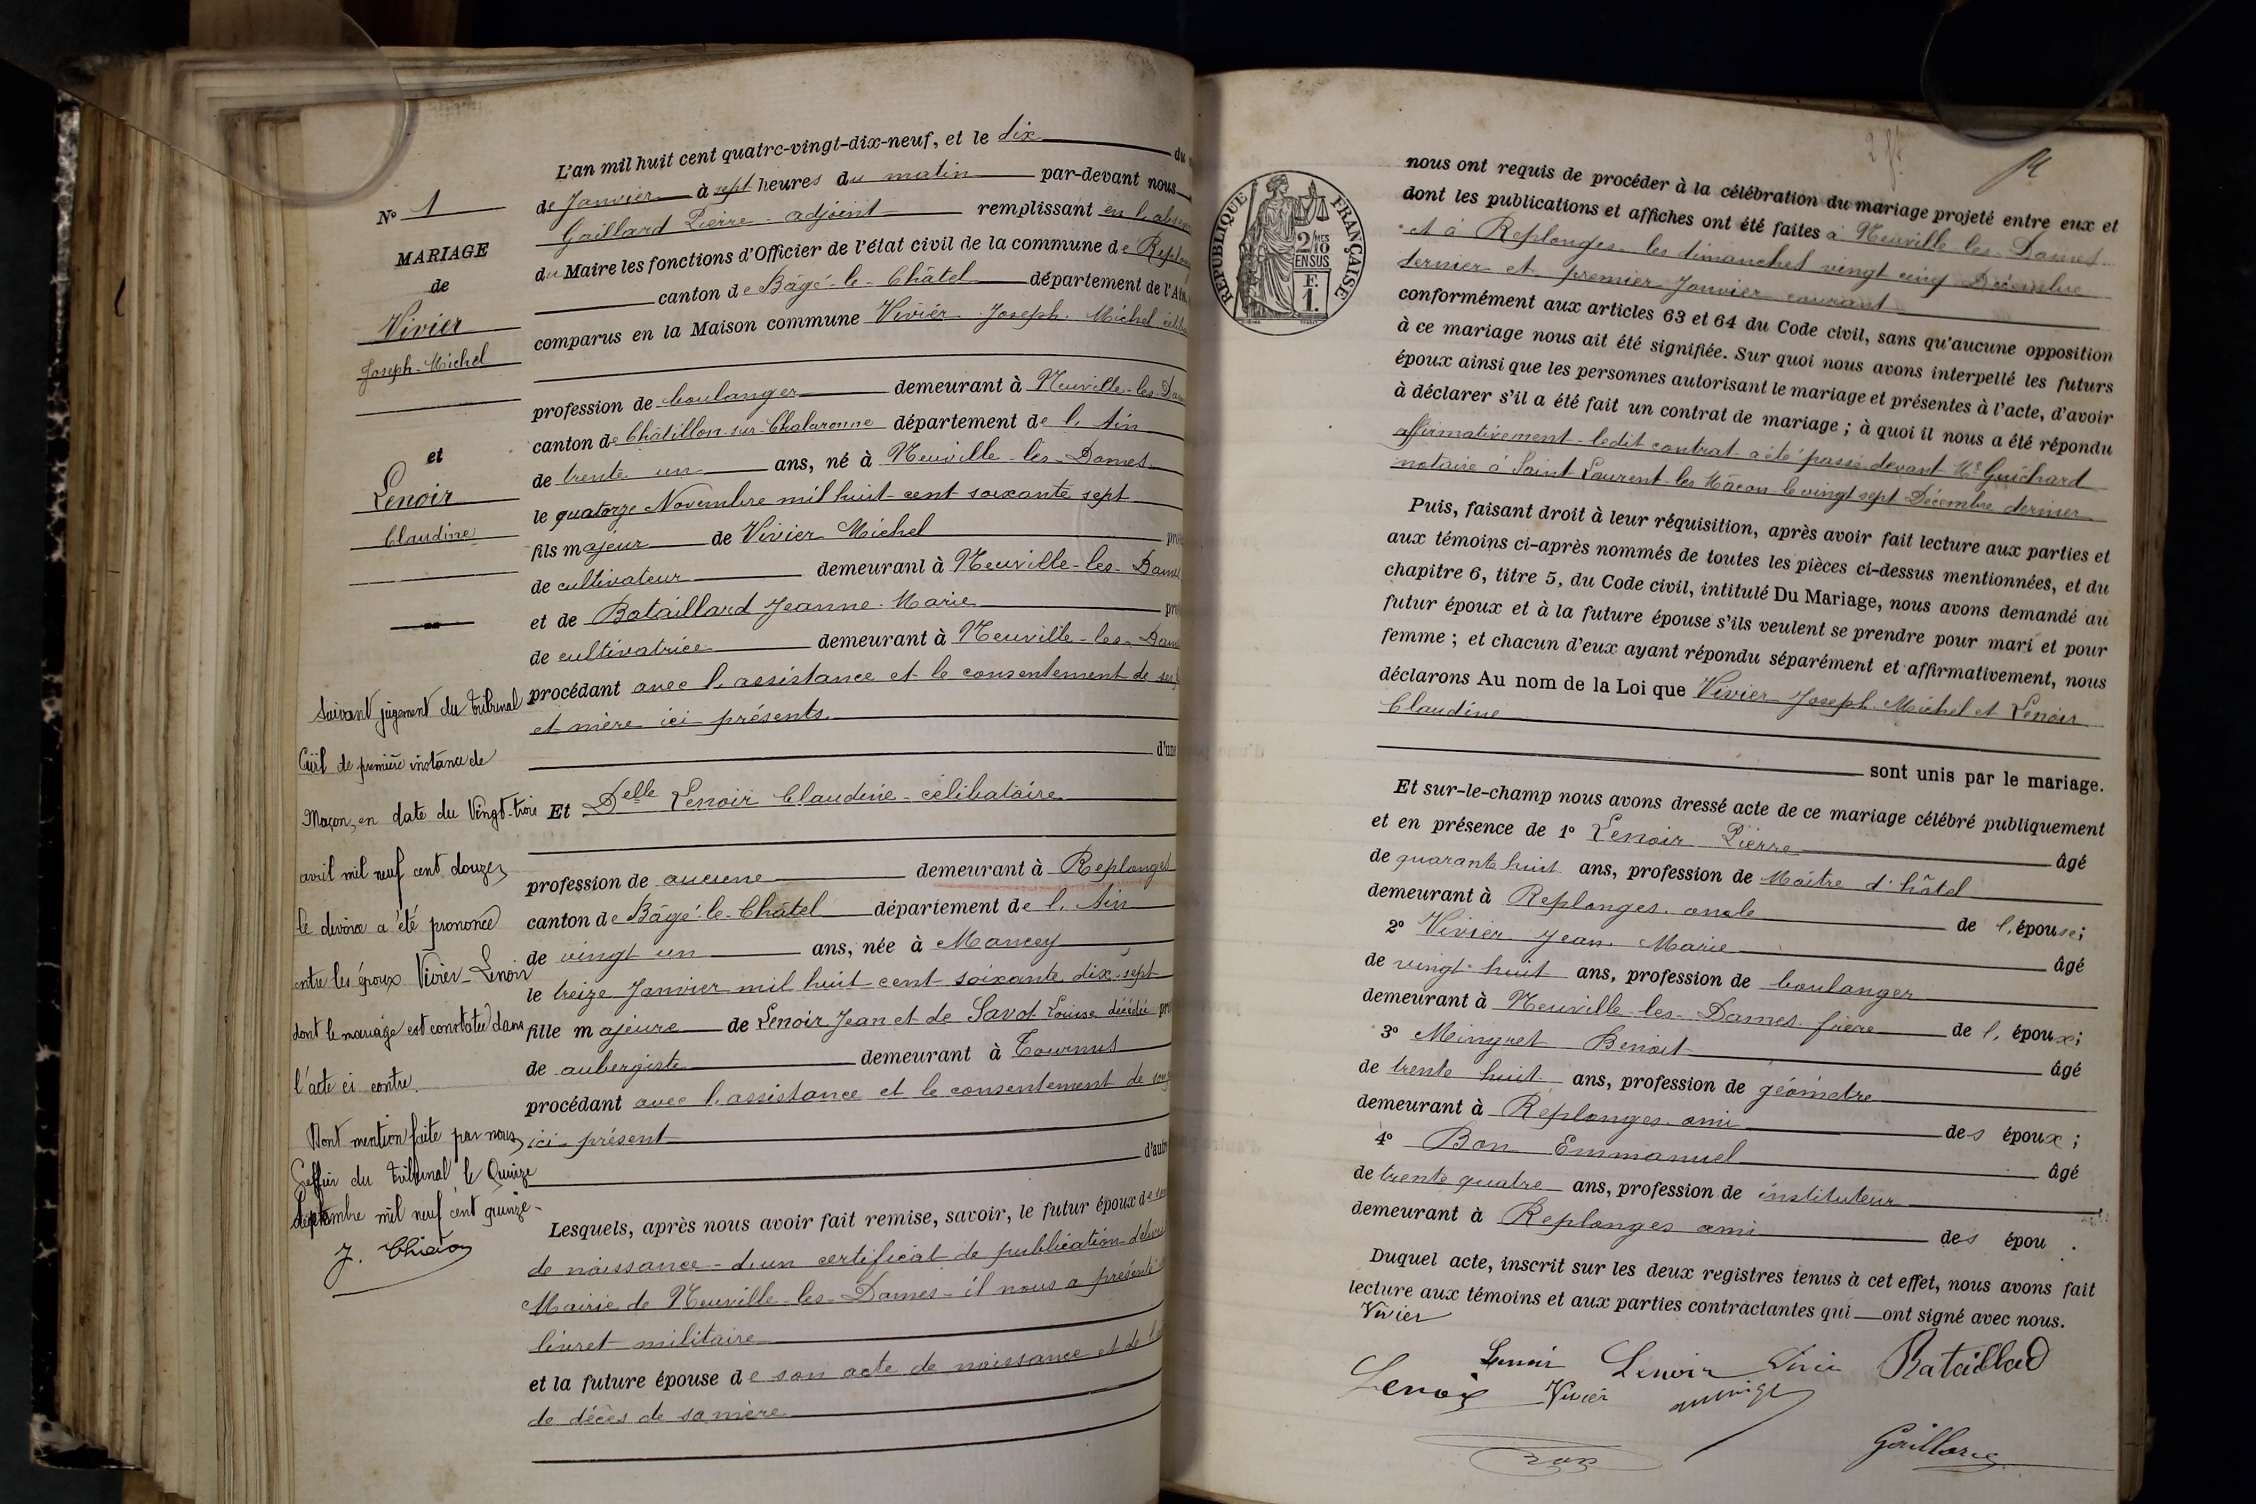 N° 1
MARIAGE
de
Vivier
Joseph-Michel
et
Lenoir
Claudine
Suivant jugement du tribunal
Civil de première instance de
Mâcon, en date du Vingt-trois
avril mil neuf cent douze,
le divorce a été prononcé
entre les époux Vivier-Lenoir
dont le mariage est constaté dans
l'acte ci contre.
Dont mention faite par nous,
Greffier du tribunal le Quinze
Septembre mil neuf cent quinze-
L'an mil huit cent quatre-vingt-dix-neuf, et le dix du
de Janvier à sept heures du matin par-devant nous
Gaillard Pierre - adjoint remplissant en l'absen
du Maire les fonctions d'Officier de l'état civil de la commune de Replon
canton de Bâgé-le-Châtel département de l'Ain
comparus en la Maison commune Vivier Joseph-Michel
profession de boulanger demeurant à Neuville-les-Dam
canton de Châtillon-sur-Chalaronne département de l'Ain
de trente un ans, né à Neuville-les-Dames
le quatorze Novembre mil huit-cent soixante sept
fils majeur de Vivier Michel pro
de cultivateur demeurant à Neuville-les-Dames
et de Bataillard Jeanne-Marie pro
de cultivatrice demeurant à Neuville-les-Dam
procédant avec l'assistance et le consentement de ses
et mère ici présents
d'une
Et Delle Lenoir Claudine - célibataire
profession de aucune demeurant à Replonges
canton de Bâgé-le-Châtel département de l'Ain
de vingt un ans, née à Mancey
le treize Janvier mil huit-cent soixante dix-sept
fille majeure de Lenoir Jean et de Savot Louise décédée pro
de aubergiste demeurant à Tournus
procédant avec l'assistance et le consentement de son
ici-présent
d'autre
Lesquels, après nous avoir fait remise, savoir, le futur époux de son
de naissance - d'un certificat de publication délivré
Mairie de Neuville-les-Dames - il nous a présenté
livret militaire
et la future épouse de son acte de naissance et de
de décès de sa mère
nous ont requis de procéder à la célébration du mariage projeté entre eux et
dont les publications et affiches ont été faites à Neuville-les-Dames
et à Replonges les dimanches vingt cinq Décembre
dernier et premier Janvier courant
conformément aux articles 63 et 64 du Code civil, sans qu'aucune opposition
à ce mariage nous ait été signifiée. Sur quoi nous avons interpellé les futurs
époux ainsi que les personnes autorisant le mariage et présentes à l'acte, d'avoir
à déclarer s'il a été fait un contrat de mariage ; à quoi il nous a été répondu
affirmativement - ledit contrat a été passé devant Me Guichard
notaire à Saint-Laurent-les-Mâcon le vingt sept Décembre dernier
Puis, faisant droit à leur réquisition, après avoir fait lecture aux parties et
aux témoins ci-après nommés de toutes les pièces ci-dessus mentionnées, et du
chapitre 6, titre 5, du Code civil, intitulé Du Mariage, nous avons demandé au
futur époux et à la future épouse s'ils veulent se prendre pour mari et pour
femme ; et chacun d'eux ayant répondu séparément et affirmativement, nous
déclarons Au nom de la Loi que Vivier Joseph-Michel et Lenoir
Claudine
sont unis par le mariage.
Et sur-le-champ nous avons dressé acte de ce mariage célébré publiquement
et en présence de 1° Lenoir Pierre âgé
de quarante huit ans, profession de Maître d'hôtel
demeurant à Replonges - oncle de l'épouse ;
2° Vivier Jean-Marie âgé
de vingt-huit ans, profession de boulanger
demeurant à Neuville-les-Dames - frère de l'époux ;
3° Mingret Benoit âgé
de trente huit ans, profession de géomètre
demeurant à Replonges - ami des époux ;
4° Bon Emmanuel âgé
de trente quatre ans, profession de instituteur
demeurant à Replonges ami des épou .
Duquel acte, inscrit sur les deux registres tenus à cet effet, nous avons fait
lecture aux témoins et aux parties contractantes qui ont signé avec nous.
Vivier
Lenoir Lenoir Bataillard
Lenoir Vivier
Gaillard
RÉPUBLIQUE FRANÇAISE
2/10MES
EN SUS
F.
1.